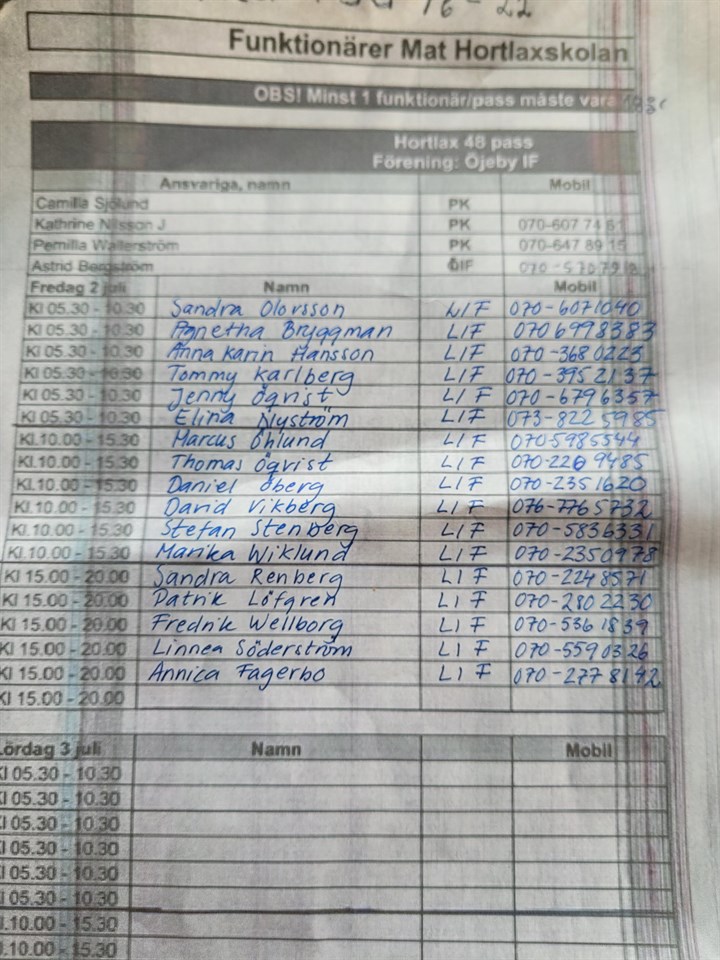 16-22
Funktionärer Mat Hortlaxskolan
OBS! Minst 1 funktionär/pass måste vara
Hortlax 48 pass
Förening: Öjeby IF
Ansvariga, namn Mobil
Camilla Sjölund PK
Kathrine Nilsson J PK 070-607 74 61
Pernilla Wallerström PK 070-647 89 15
Astrid Bergström ÖIF
Fredag 2 juli Namn Mobil
Kl 05.30 - 10.30 Sandra Olovsson LIF 070-6071040
Kl 05.30 - 10.30 Agnetha Bryggman LIF 070 6998383
Kl 05.30 - 10.30 Anna Karin Hansson LIF 070-3680223
Kl 05.30 - 10.30 Tommy Karlberg LIF 070-3952137
Kl 05.30 - 10.30 Jenny Öqvist LIF 070-6796357
Kl 05.30 - 10.30 Elina Nyström LIF 073-822 5985
Kl.10.00 - 15.30 Marcus Öhlund LIF 070-5985544
Kl.10.00 - 15.30 Thomas Öqvist LIF 070-226 9485
Kl.10.00 - 15.30 Daniel Öberg LIF 070-2351620
Kl.10.00 - 15.30 David Vikberg LIF 076-7765732
Kl.10.00 - 15.30 Stefan Stenberg LIF 070-5836331
Kl.10.00 - 15.30 Marika Wiklund LIF 070-2350978
Kl 15.00 - 20.00 Sandra Renberg LIF 070-2248571
Kl 15.00 - 20.00 Patrik Löfgren LIF 070-2802230
Kl 15.00 - 20.00 Fredrik Wellborg LIF 070-5361839
Kl 15.00 - 20.00 Linnea Söderström LIF 070-5590326
Kl 15.00 - 20.00 Annica Fagerbo LIF 070-2778142
Kl 15.00 - 20.00
Lördag 3 juli Namn Mobil
Kl 05.30 - 10.30
Kl 05.30 - 10.30
Kl 05.30 - 10.30
Kl 05.30 - 10.30
Kl 05.30 - 10.30
Kl 05.30 - 10.30
Kl.10.00 - 15.30
Kl.10.00 - 15.30